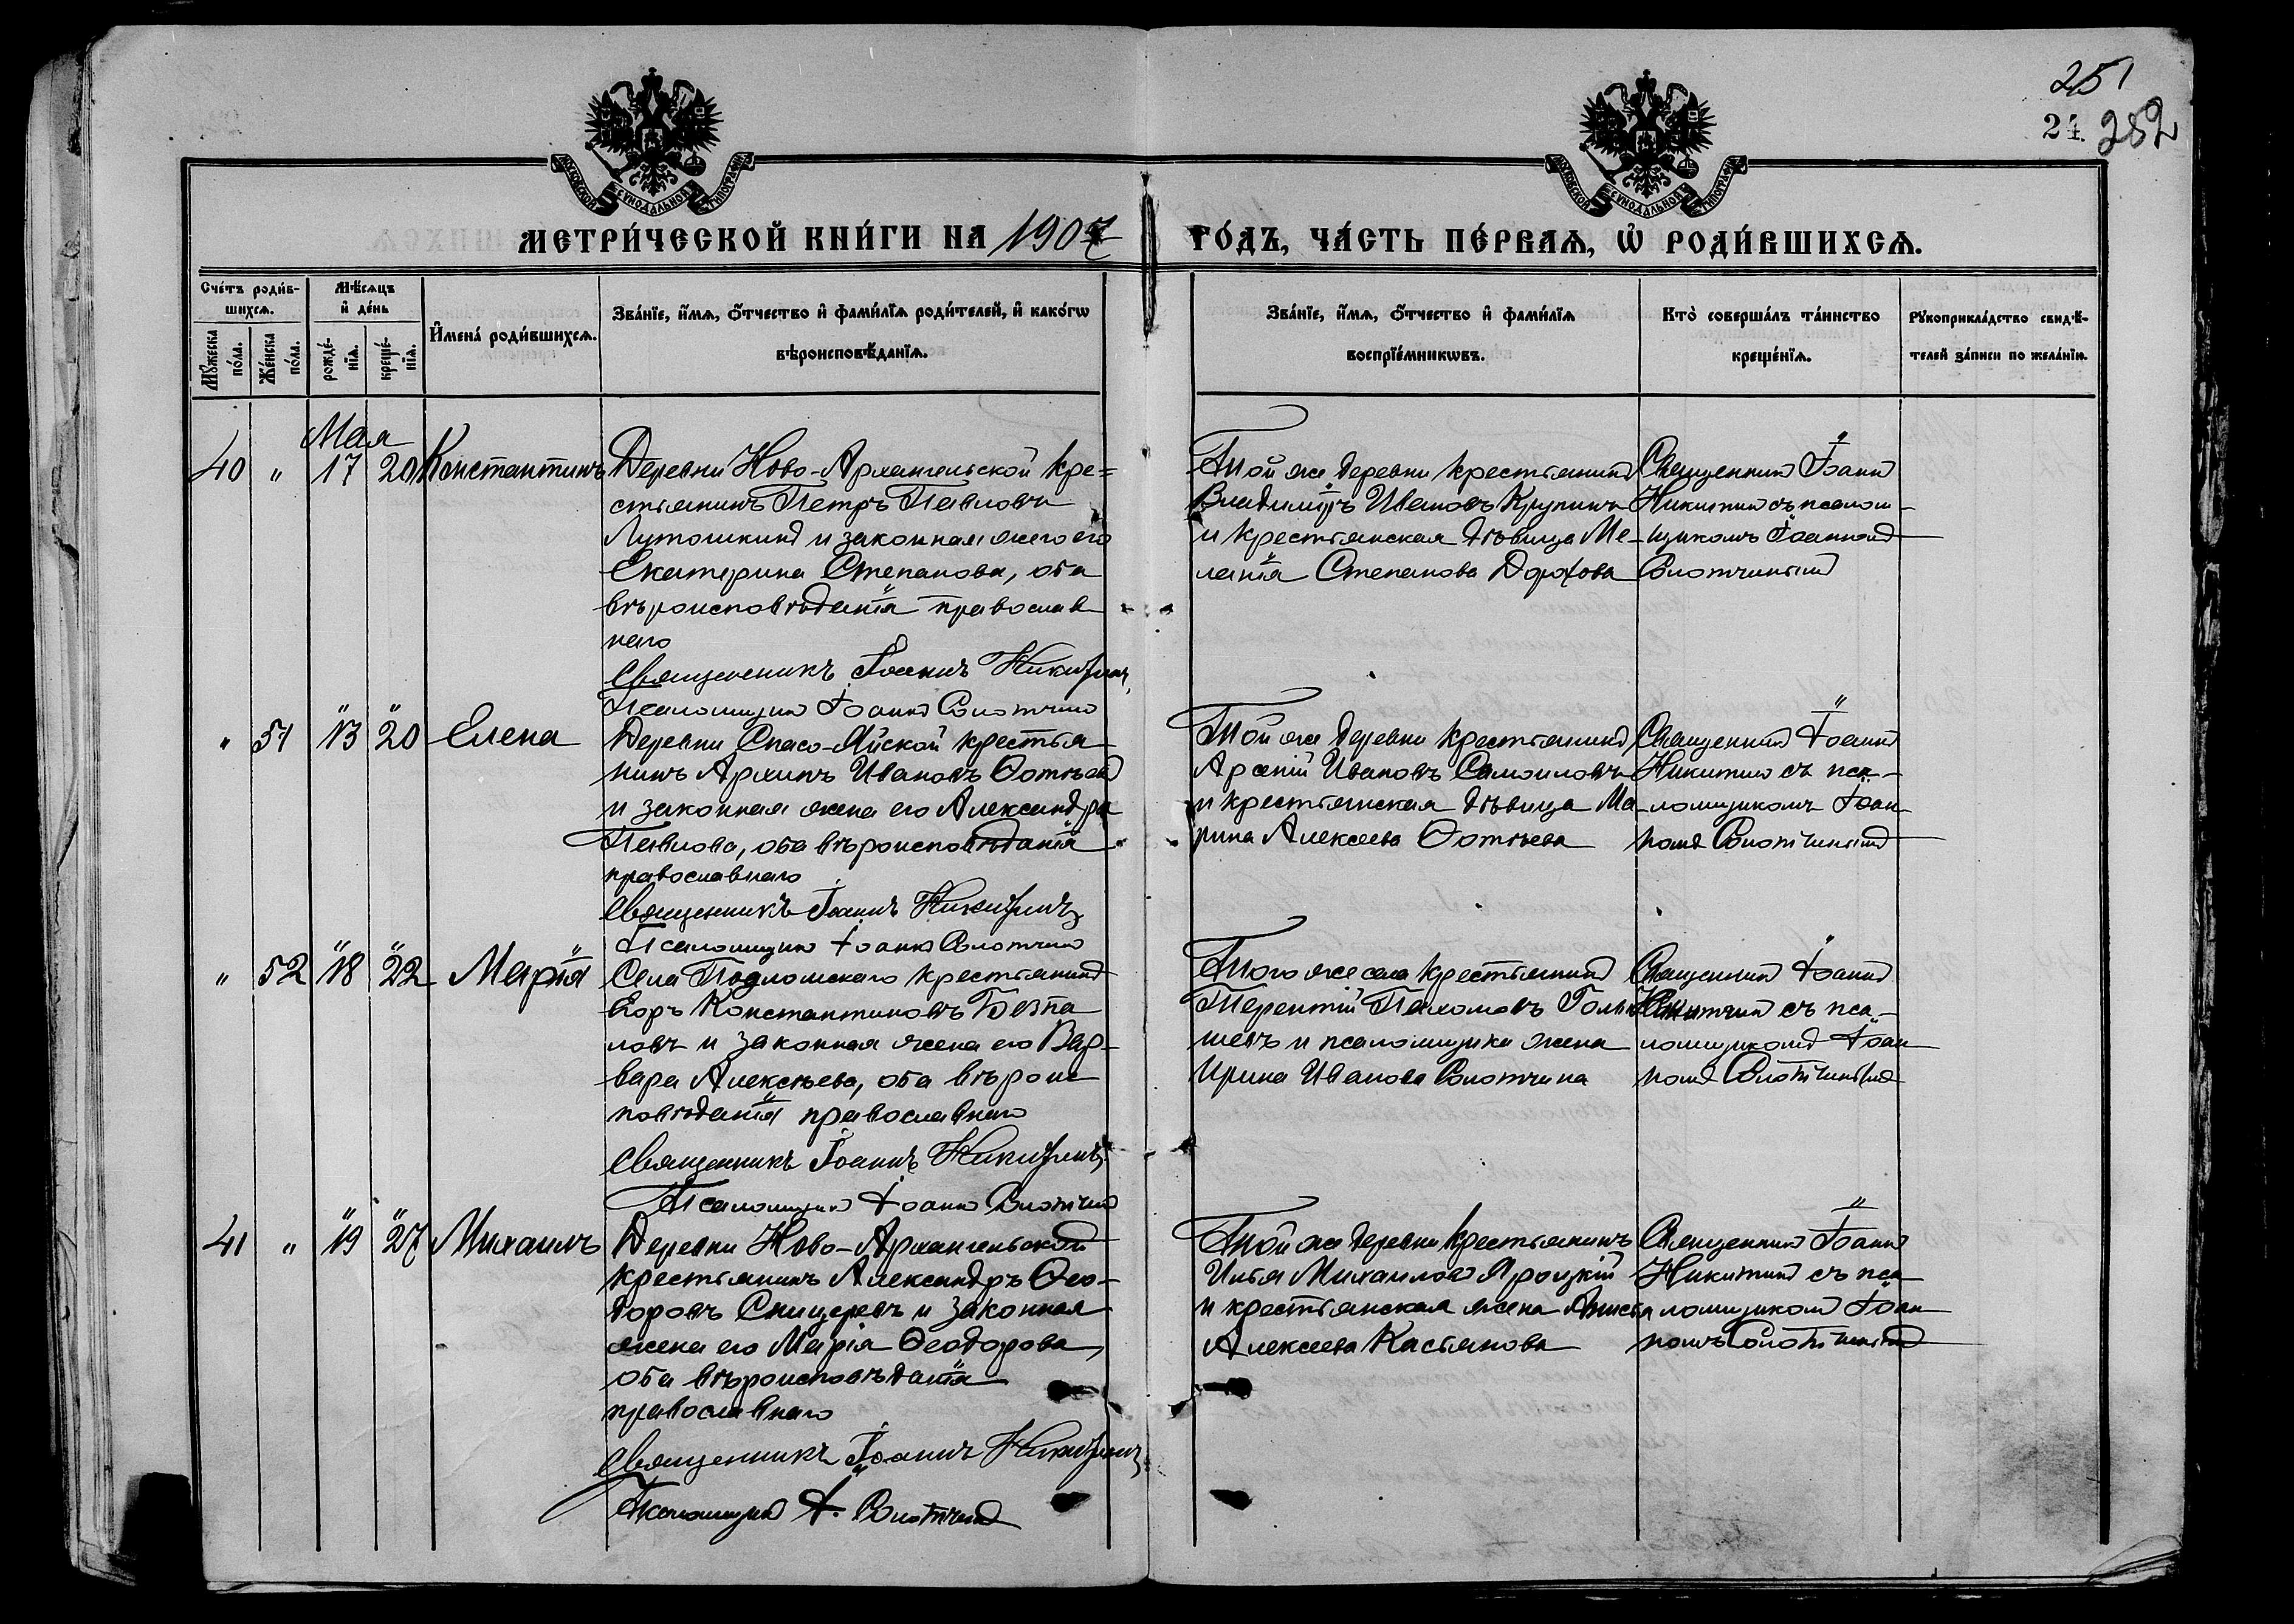 251
24 252
МОСКОВСКОЙ СѴНОДАЛЬНОЙ ТИПОГРАФІИ
МОСКОВСКОЙ СѴНОДАЛЬНОЙ ТИПОГРАФІИ
МЕТРИ́ЧЕСКОЙ КНИ́ГИ НА 1907 ГО́ДЪ, ЧА́СТЬ ПЕ́РВАѦ, Ѡ҆ РОДИ́ВШИХСѦ.
Сче́тъ роди́в-
шихсѧ.
Мꙋ́жеска по́ла.
Же́нска по́ла.
Мѣ́сѧцъ
и҆ де́нь
рожде́-
нїѧ.
креще́-
нїѧ.
И҆мена̀ роди́вшихсѧ.
Зва́нїе, и҆́мѧ, ѻ҆́тчество и҆ фами́лїѧ роди́телей, и҆ како́гѡ
вѣроисповѣ́данїѧ.
Зва́нїе, и҆́мѧ, ѻ҆́тчество и҆ фами́лїѧ
воспрїе́мникѡвъ.
Кто̀ соверша́лъ та́инство
креще́нїѧ.
Рꙋкоприкла́дство свидѣ́-
телей за́писи по жела́нїю.
Мая
40 " 17 20 Константинъ
Деревни Ново-Архангельской кре=
стьянинъ Петръ Павловъ
Лутошкинъ и законная жена его
Екатерина Степанова, оба
вѣроисповѣданія православ
наго
Священникъ Іоаннъ Никитинъ
Псаломщикъ Іоаннъ Солотчинъ
Той же деревни крестьянинъ
Владиміръ Ивановъ Крупинъ
и крестьянская дѣвица Ме-
ланія Степанова Дорохова
Священникъ Іоаннъ
Никитинъ съ псалом-
щикомъ Іоанномъ
Солотчинымъ
" 51 13 20 Елена
Деревни Спасо-Яйской крестья
нинъ Архипъ Ивановъ Ѳотѣевъ
и законная жена его Александра
Павлова, оба вѣроисповѣданія
православнаго
Священникъ Іоаннъ Никитинъ
Псаломщикъ Іоаннъ Солотчинъ
Той же деревни крестьянинъ
Арсеній Ивановъ Самойловъ
и крестьянская дѣвица Ма-
рина Алексеева Ѳотѣева
Священникъ Іоаннъ
Никитинъ съ пса-
ломщикомъ Іоан
номъ Солотчинымъ
" 52 18 22 Марія
Села Подломскаго крестьянинъ
Егоръ Константиновъ Безпа
ловъ и законная жена его Вар-
вара Алексѣева, оба вѣроис
повѣданія православнаго
Священникъ Іоаннъ Никитинъ
Псаломщикъ Іоаннъ Солотчинъ
Того же села крестьянинъ
Терентій Пахомовъ
шевъ и псаломщика жена
Ирина Иванова Солотчина
Священникъ Іоаннъ
Никитинъ съ пса-
ломщикомъ Іоан
номъ Солотчинымъ
41 " 19 27 Михаилъ
Деревни Ново-Архангельской
крестьянинъ Александръ Ѳео-
доровъ Снищеревъ и законная
жена его Марія Ѳеодорова,
оба вѣроисповѣданія
православнаго
Священникъ Іоаннъ Никитинъ
Псаломщикъ І. Солотчинъ
Той же деревни крестьянинъ
Илья Михаиловъ Яроцкій
и крестьянская жена
Алексеева Касьянова
Священникъ Іоаннъ
Никитинъ съ пса
ломщикомъ Іоан
номъ Солотчинымъ